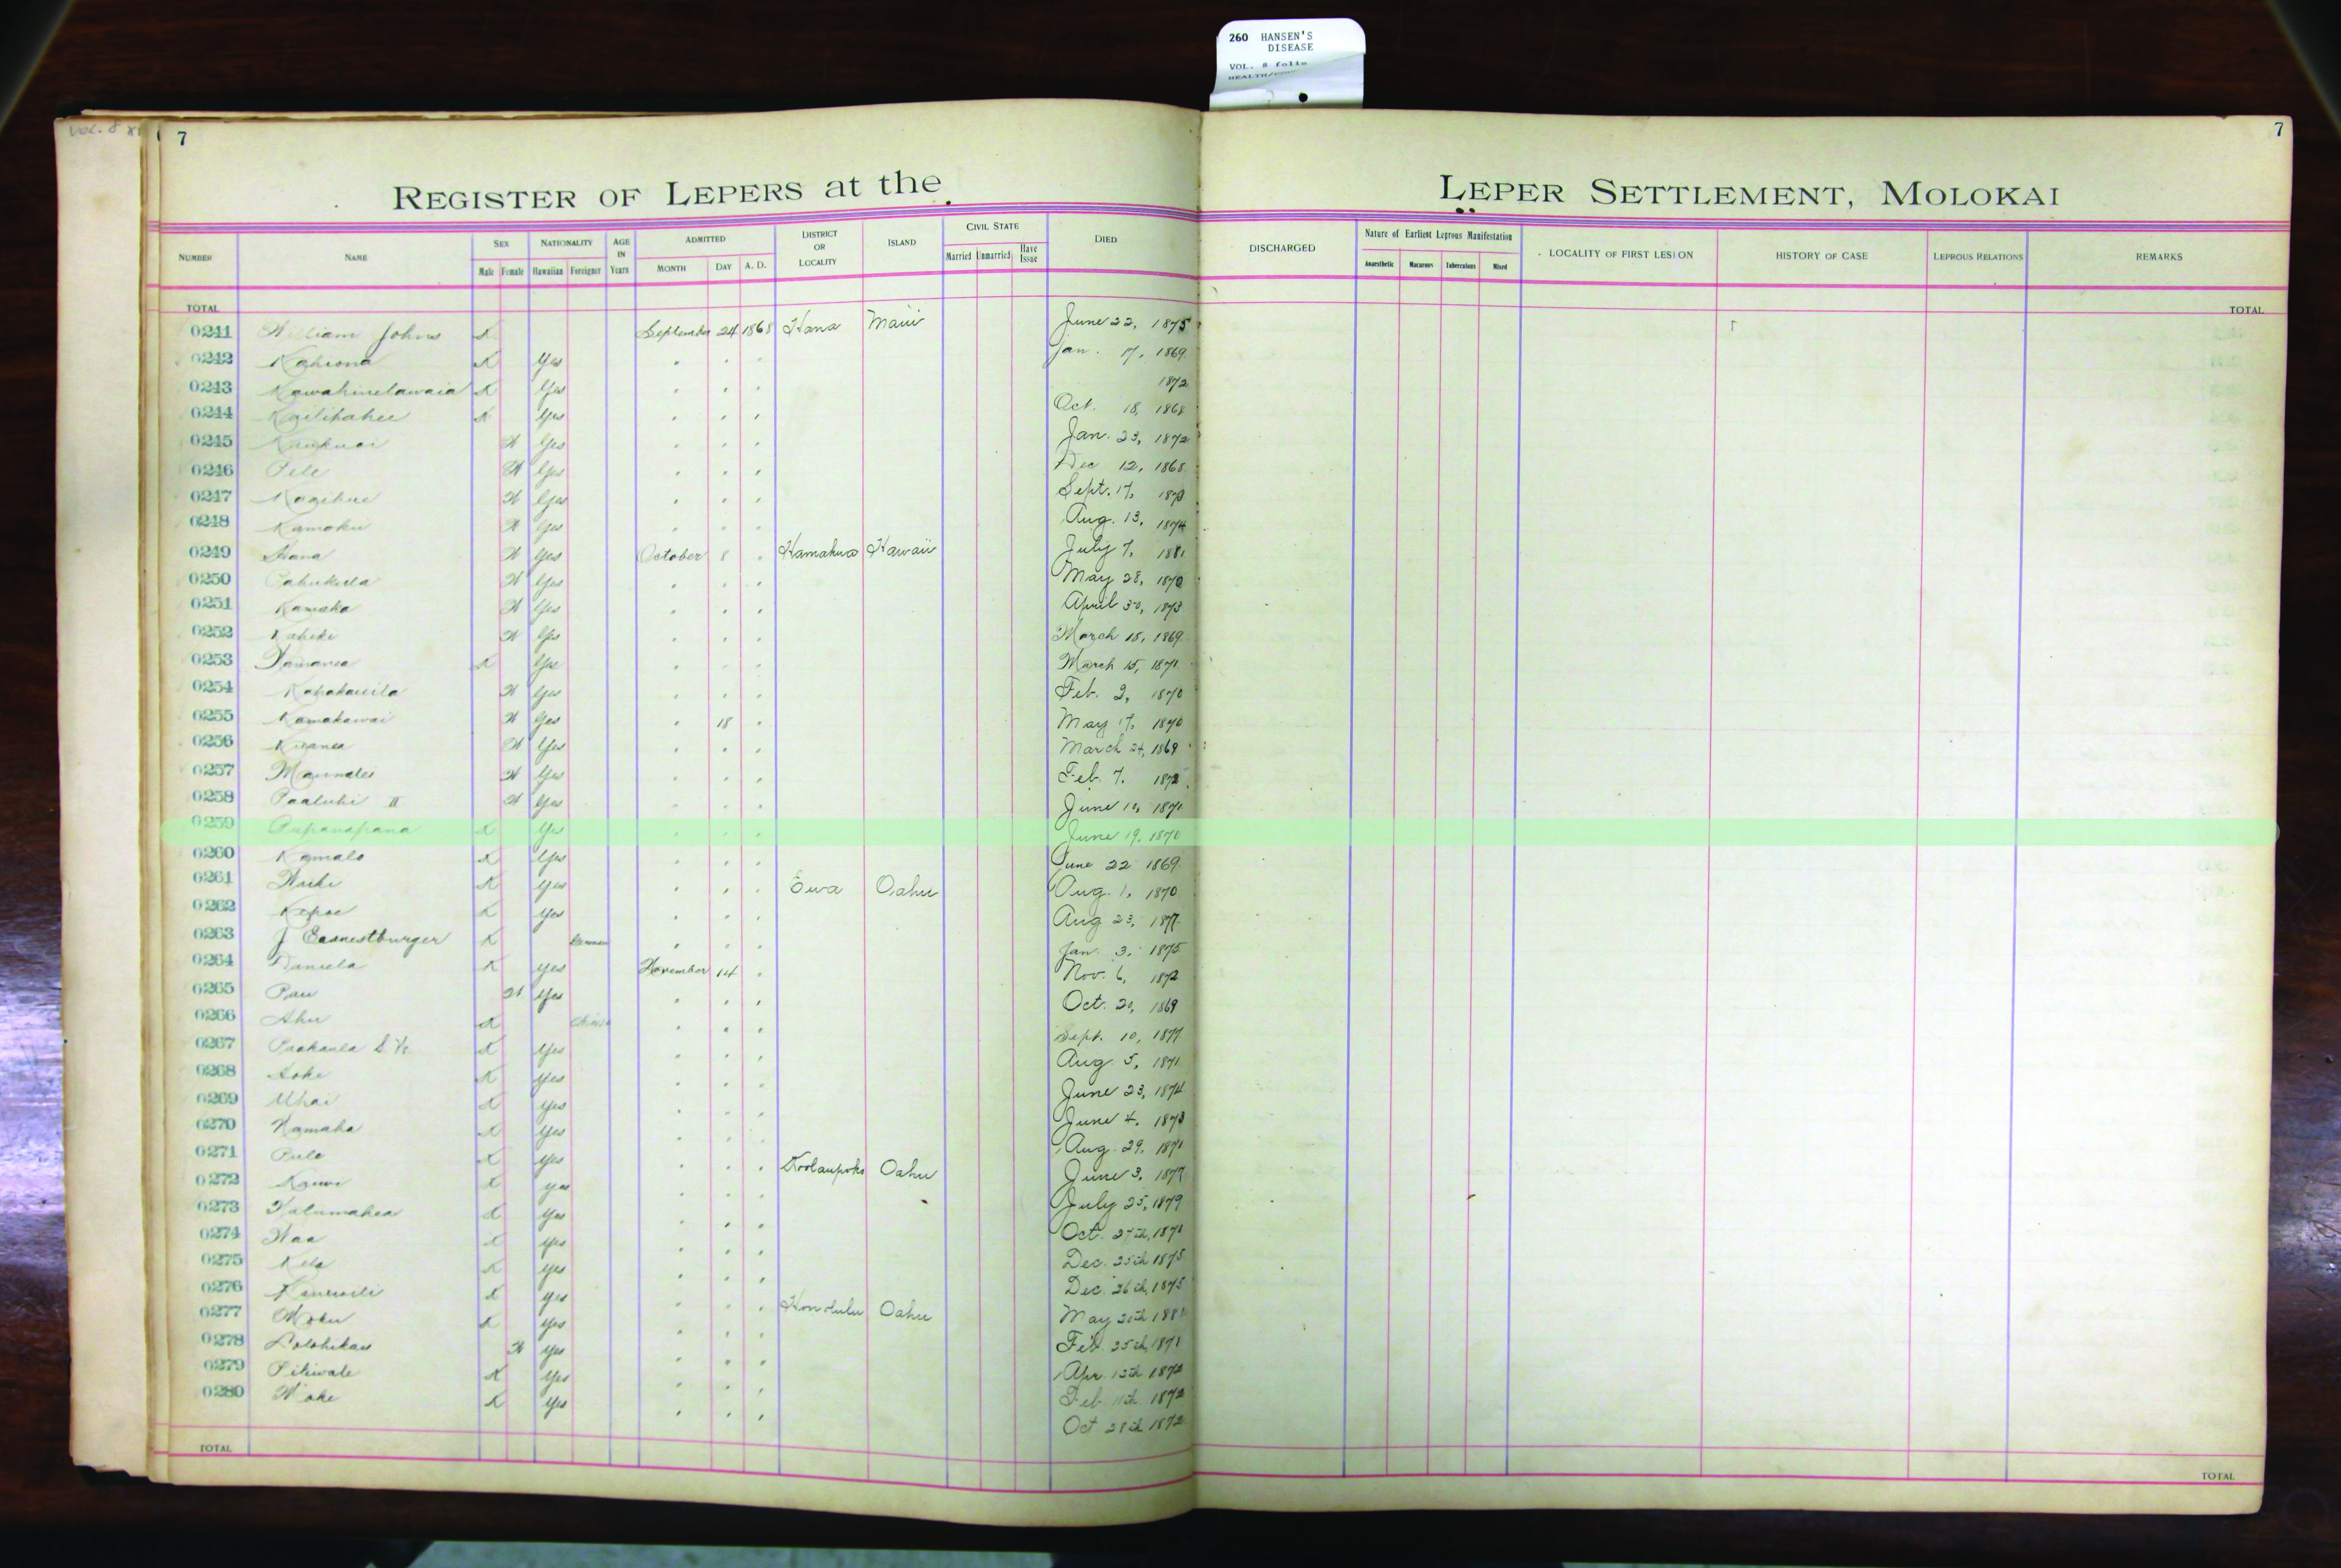 260 HANSEN'S
DISEASE
VOL. 8 folio
VOL. 8
7
7
REGISTER OF LEPERS at the
LEPER SETTLEMENT, MOLOKAI
NUMBER NAME SEX NATIONALITY AGE IN Years ADMITTED DISTRICT OR LOCALITY ISLAND CIVIL STATE DIED DISCHARGED Nature of Earliest Leprous Manifestation LOCALITY OF FIRST LESION HISTORY OF CASE LEPROUS RELATIONS REMARKS
Male Female Hawaiian Foreigner MONTH DAY A. D. Married Unmarried Have Issue Anaesthetic Macurous Tuberculous Mixed
TOTAL TOTAL
0241 William Johns X September 24 1868 Hana Maui June 22, 1875
0242 Kahiona X Yes " " " Jan. 17, 1869
0243 Kawahinelawaia X Yes " " " 1872
0244 X Yes " " " Oct. 18, 1868
0245 X Yes " " " Jan. 23, 1872
0246 Pele X Yes " " " Dec 12, 1868
0247 X Yes " " " Sept. 17, 1873
0248 Kamoku X Yes " " " Aug. 13, 1874
0249 Hana X Yes October 8 " Hamakua Hawaii July 7, 1881
0250 X Yes " " " May 28, 1870
0251 Kamaka X Yes " " " April 30, 1873
0252 X Yes " " " March 18, 1869
0253 X Yes " " " March 15, 1871
0254 X Yes " " " Feb. 2, 1870
0255 Kamakawai X Yes " 18 " May 17, 1870
0256 X Yes " " " March 24, 1869
0257 X Yes " " " Feb. 7, 1872
0258 Paaluhi II X Yes " " " June 10, 1871
0259 Pupanapana X Yes " " " June 19, 1870
0260 Kamalo X Yes " " " June 22 1869
0261 X Yes " " " Ewa Oahu Aug. 1, 1870
0262 Kepae X Yes " " " Aug 23, 1877
0263 J Earnestburger X German " " " Jan. 3, 1875
0264 Daniela X Yes November 14 " Nov. 6, 1872
0265 Pau X Yes " " " Oct. 20, 1869
0266 Ahu X Chinese " " " Sept. 10, 1877
0267 X Yes " " " Aug. 5, 1871
0268 X Yes " " " June 23, 1874
0269 X Yes " " " June 4, 1873
0270 X Yes " " " Aug. 29, 1871
0271 Pule X Yes " " " Koolaupoko Oahu June 3, 1877
0272 X Yes " " " July 25, 1879
0273 Kalumahea X Yes " " " Oct. 27th, 1871
0274 X Yes " " " Dec. 25th 1875
0275 X Yes " " " Dec. 26th, 1875
0276 X Yes " " " Honolulu Oahu May 20th
0277 Moku X Yes " " " Feb. 25th, 1871
0278 X Yes " " " Apr. 13th 1872
0279 Piliwale X Yes " " " Feb. 11th 1872
0280 X Yes " " " Oct 28th 1872
TOTAL TOTAL